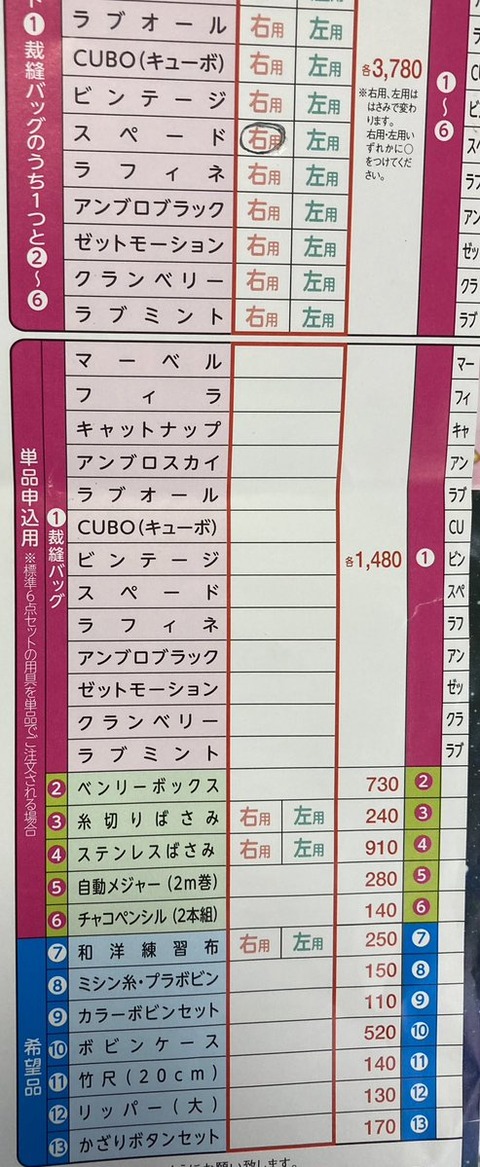 ❶裁縫バッグのうち1つと❷～❻
ラブオール 右用 左用
CUBO(キューボ) 右用 左用
ビンテージ 右用 左用
スペード 右用 左用
ラフィネ 右用 左用
アンブロブラック 右用 左用
ゼットモーション 右用 左用
クランベリー 右用 左用
ラブミント 右用 左用
各3,780
※右用、左用は
はさみで変わ
ります。
右用・左用い
ずれかに○
をつけてくだ
さい。
❶～❻
単品申込用 ※標準6点セットの用具を単品でご注文される場合
❶裁縫バッグ
マーベル
フィラ
キャットナップ
アンブロスカイ
ラブオール
CUBO(キューボ)
ビンテージ
スペード
ラフィネ
アンブロブラック
ゼットモーション
クランベリー
ラブミント
各1,480 ❶
マー
フィ
キャ
アン
ラブ
CU
ビン
スペ
ラフ
アン
ゼッ
クラ
ラブ
❷ ベンリーボックス 730 ❷
❸ 糸切りばさみ 右用 左用 240 ❸
❹ ステンレスばさみ 右用 左用 910 ❹
❺ 自動メジャー(2m巻) 280 ❺
❻ チャコペンシル(2本組) 140 ❻
希望品
❼ 和洋練習布 右用 左用 250 ❼
❽ ミシン糸・プラボビン 150 ❽
❾ カラーボビンセット 110 ❾
❿ ボビンケース 520 ❿
⓫ 竹尺(20cm) 140 ⓫
⓬ リッパー(大) 130 ⓬
⓭ かざりボタンセット 170 ⓭
お願い致します。